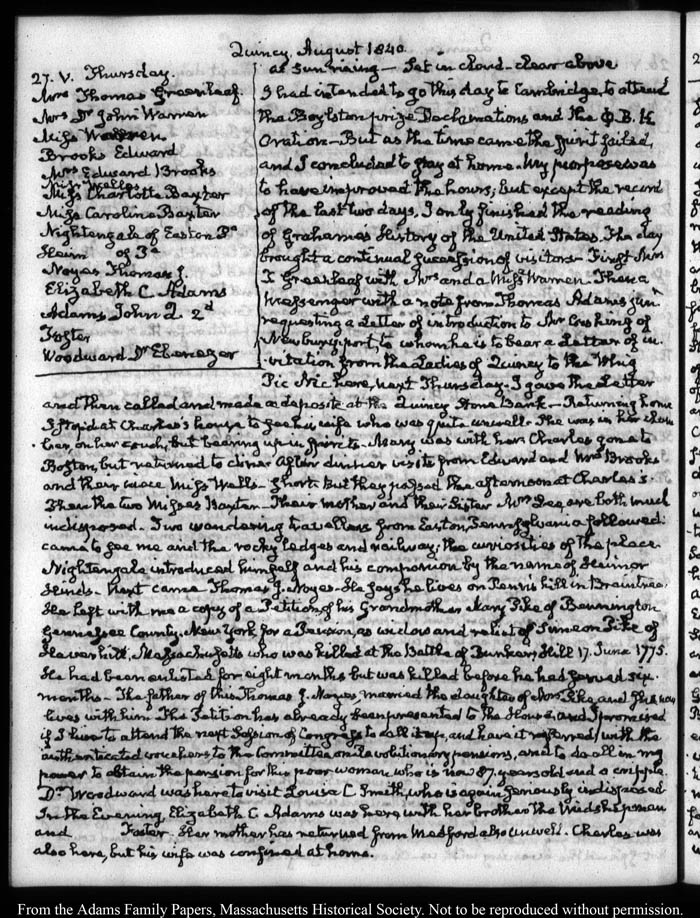 Quincy, August 1840.
27. V. Thursday.
Mrs Thomas Greenleaf.
Mrs Dr John Warren
Miss Warren
Brooks Edward
Mrs Edward Brooks
Miss Wells
Miss Charlotte Baxter
Miss Caroline Baxter
Nightengale of Easton Pa
of Pa
Noyes Thomas J.
Elizabeth C. Adams
Adams John Q. 2d
Foster
Woodward Dr Ebenezer
at Sun rising — Set in cloud — clear above
I had intended to go this day to Cambridge, to attend
the Boylston prize Declamations and the Φ.B.K.
Oration — But as the time came the spirit failed,
and I concluded to stay at home. My purpose was
to have improved the hours; but except the record
of the last two days, I only finished the reading
of Grahame's History of the United States. The day
brought a continual succession of visitors — First Mrs
T Greenleaf with Mrs and a Miss Warren. Then a
Messenger with a note from Thomas Adams junr
requesting a Letter of introduction to Mr Cushing of
Newburyport, to whom he is to bear a Letter of in-
vitation from the Ladies of Quincy to the Whig
Pic Nic here, next Thursday. I gave the Letter
and then called and made a deposite at the Quincy Stone Bank — Returning home
I stop'd at Charles's house to see his wife who was quite unwell. She was in her cham
ber, on her couch, but bearing up in spirits — Mary was with her. Charles gone to
Boston, but returned to dinner. After dinner visits from Edward and Mrs Brooks
and their niece Miss Wells — Short. But they passed the afternoon at Charles's.
Then the two Misses Baxter — Their mother and their Sister Mrs Lee are both much
indisposed. Two wandering travellers from Easton, Pennsylvania followed:
came to see me and the rocky ledges and railway, the curiosities of the place.
Nightengale introduced himself and his companion by the name of
Next came Thomas J. Noyes — He says he lives on Penn's hill in Braintree.
He left with me a copy of a Petition of his Grandmother Mary Pike of Bennington
Gennessee County, New York for a Pension, as widow and relict of Simeon Pike of
Haverhill, Massachusetts who was killed at the Battle of Bunkers Hill 17. June 1775.
He had been enlisted for eight months but was killed before he had served six
months — The father of this Thomas J. Noyes, married the daughter of Mrs Pike and she now
lives with him. The Petition has already been presented to the House, and I promised
if I live to attend the next Session of Congress to call it up, and have it referred, with the
authenticated vouchers to the Committee on Revolutionary pensions, and to do all in my
power to obtain the pension for this poor woman, who is now 87. years old and a cripple.
Dr Woodward was here to visit Louisa C. Smith, who is again seriously indisposed
In the Evening, Elizabeth C. Adams was here with her brother the Midshipman
and Foster. Her mother has returned from Medford also unwell. Charles was
also here, but his wife was confined at home.
From the Adams Family Papers, Massachusetts Historical Society. Not to be reproduced without permission.